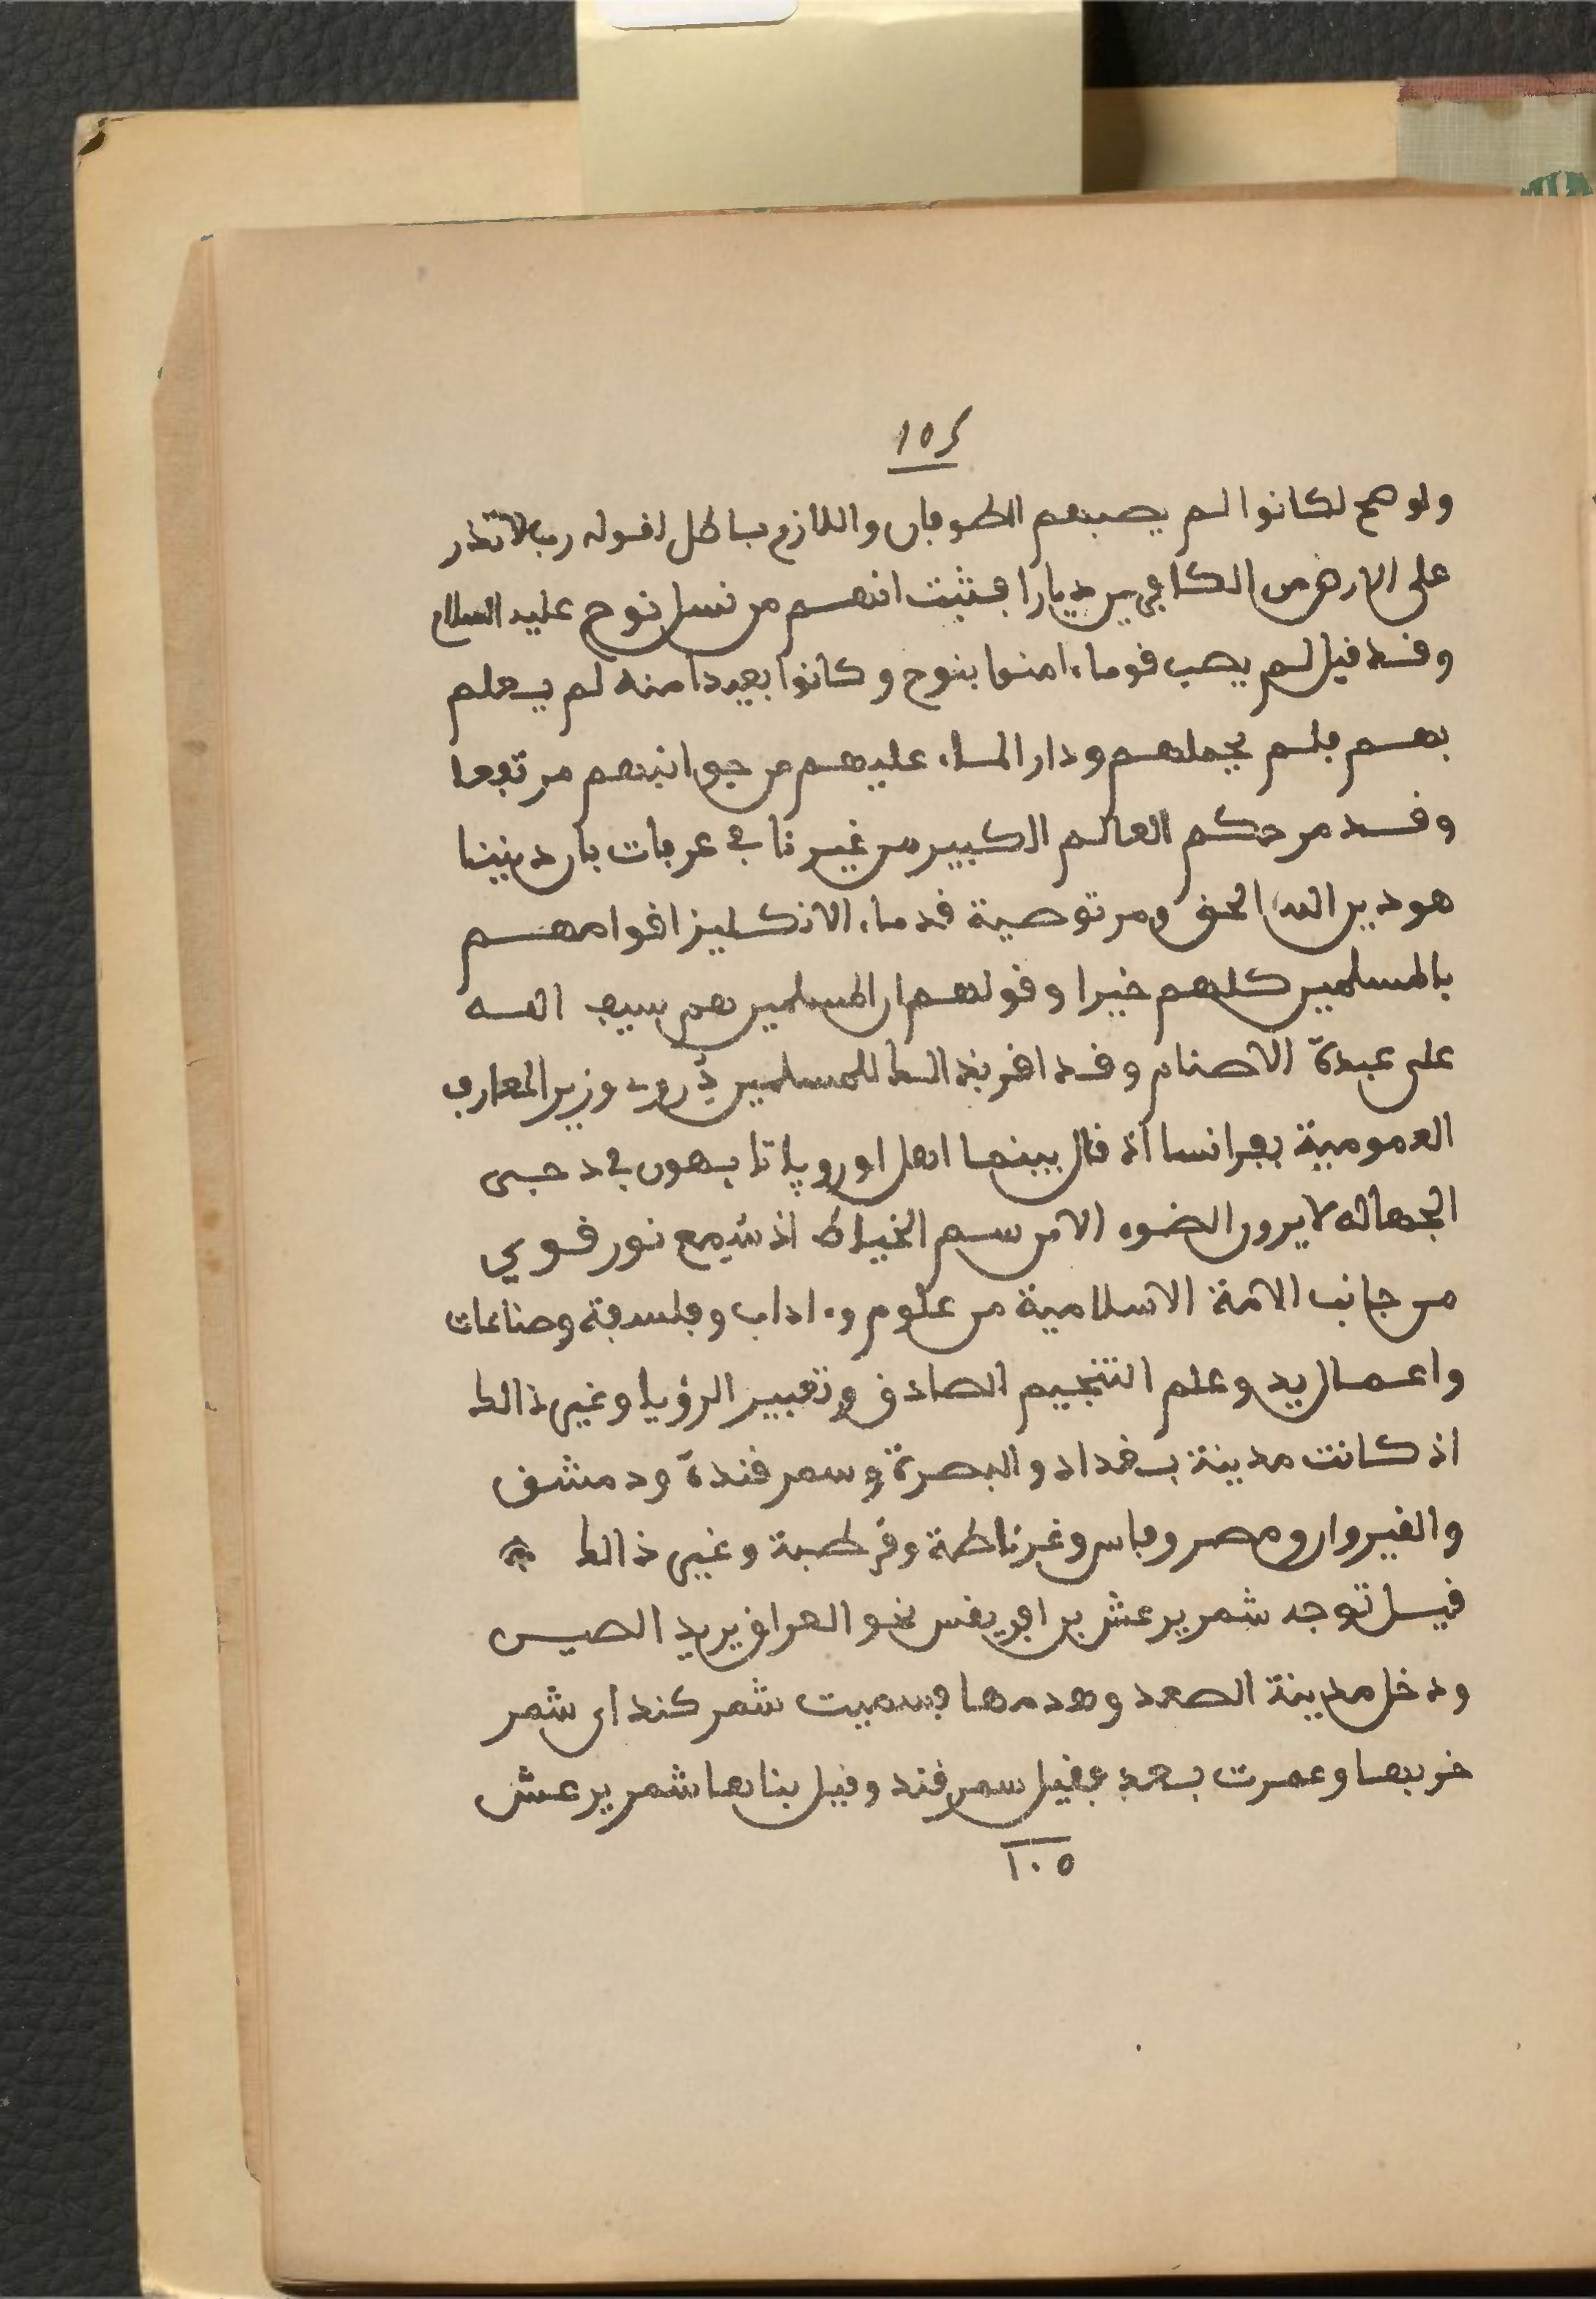 ١٥٤
ولو صح لكانوا لم يصبهم الطوفان واللازم باطل لقوله رب لا تذر
على الارض من الكافرين ديارا فثبت انهم من نسل نوح عليه السلام
وقد قيل لم يصب قوما ءامنوا بنوح وكانوا بعيدا منه لم يعلم
بهم فلم يحملهم ودار الماء عليهم من جوانبهم مرتفعا
وقد مر حكم العالم الكبير من غيرنا في عرفات بان ديننا
هو دين الله الحق ومر توصية قدماء الانكليز اقوامهم
بالمسلمين كلهم خيرا وقولهم ان المسلمين هم سيف الله
على عبدة الاصنام وقد اقر بذالك للمسلمين دروى وزير المعارف
العمومية بفرانسا اذ قال بينما اهل اوروپا تايهون في دجى
الجهالة لا يرون الضوء الا من سم الخياط اذ سمع نور قوي
من جانب الامة الاسلامية من علوم وءاداب وفلسفة وصناعات
واعمال يد وعلم التنجيم الصادق وتعبير الرؤيا وغير ذالك
اذ كانت مدينة بغداد والبصرة وسمرقندة ودمشق
والقيروان ومصر وفاس وغرناطة وقرطبة وغير ذالك
قيل توجه شمر يرعش بن افريقس نحو العراق يريد الصين
ودخل مدينة الصغد وهدمها فسميت شمر كند اى شمر
خربها وعمرت بعد فقيل سمرقند وقيل بناها شمر يرعش
١٠٥